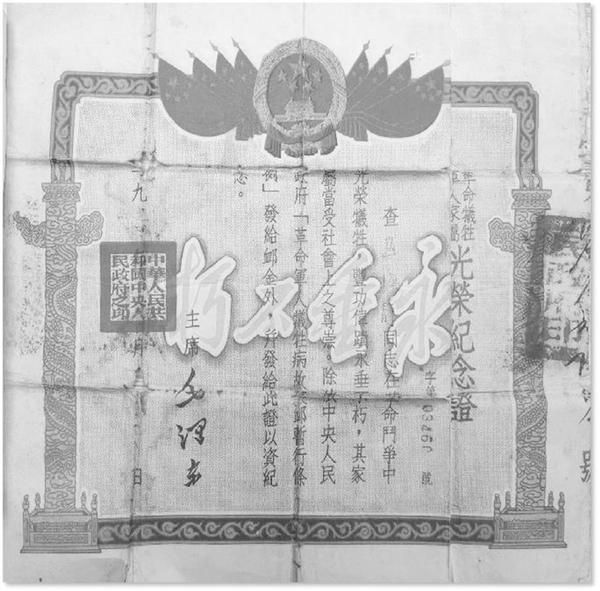 革命犧牲
軍人家屬
光榮紀念證
字第 號
查 同志在革命鬥爭中
光榮犧牲,豐功偉蹟永垂不朽,其家
屬當受社會上之尊崇。除依中央人民
政府「革命軍人犧牲病故褒卹暫行條
例」發給卹金外,并發給此證以資紀
念。
永垂不朽
主席 毛澤東
一九 月 日
中華人民共
和國中央人
民政府之印
號